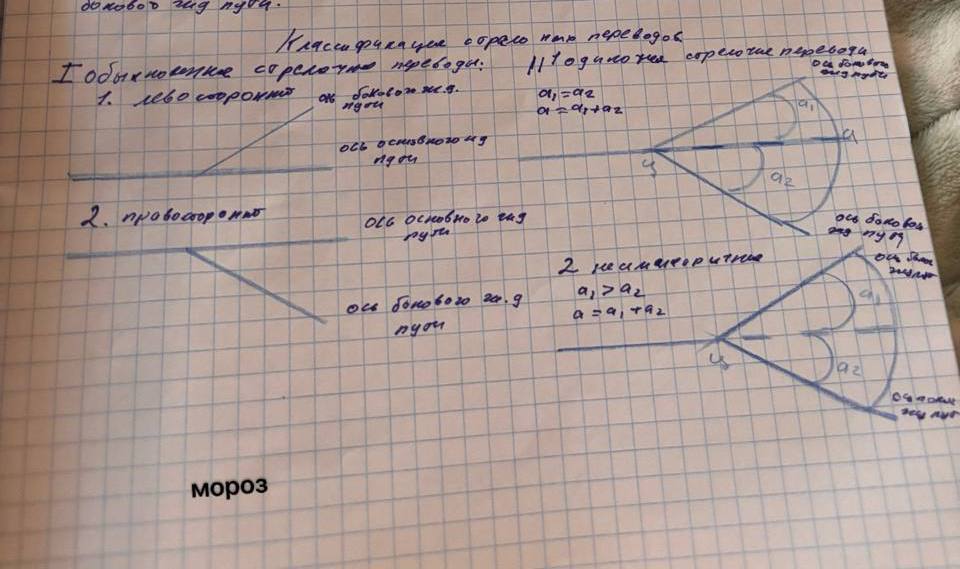 бокового жд пути.
Классификация стрелочных переводов
I Обыкновенные стрелочные переводы:
1. левосторонний
ось бокового ж.д.
пути
ось основного жд
пути
2. правосторонний
ось основного жд
пути
ось бокового ж.д
пути
II 1 одиночные стрелочные переводы
a₁=a₂
a=a₁+a₂
ось бокового
жд пути
a₁
a
Ц
a₂
ось боковой
жд пути
2 несимметричные
a₁>a₂
a=a₁+a₂
a₁
Ц
a₂
мороз